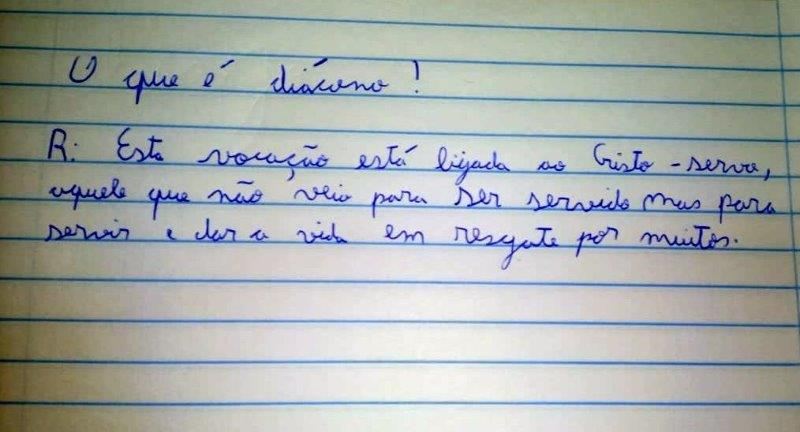 O que é diácono!
R: Esta vocação está ligada ao Cristo-servo,
aquele que não veio para ser servido mas para
servir e dar a vida em resgate por muitos.